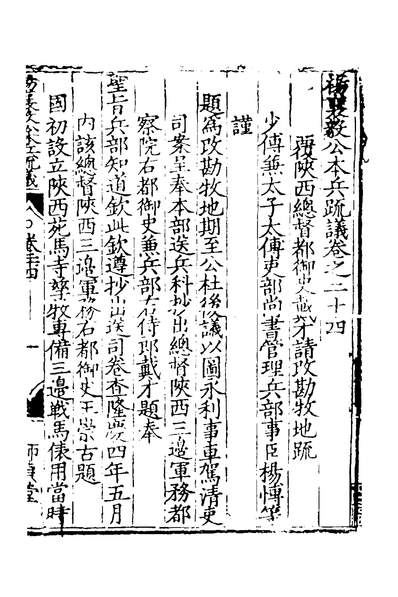 楊襄毅公本兵疏議卷之二十四
覆陝西總督都御史戴才請改勘牧地疏
少傅兼太子太傅吏部尚書管理兵部事臣楊博等
謹
題為改勘牧地期至公杜後議以圖永利事車駕清吏
司案呈奉本部送兵科抄出總督陝西三邊軍務都
察院右都御史兼兵部右侍郎戴才題奉
聖旨兵部知道欽此欽遵抄出送司卷查隆慶四年五月
內該總督陝西三邊軍務右都御史王崇古題
國初設立陝西苑馬寺孳牧專備三邊戰馬俵用當時
楊襄毅公本兵疏議
八〇卷二十四
一
師貞堂